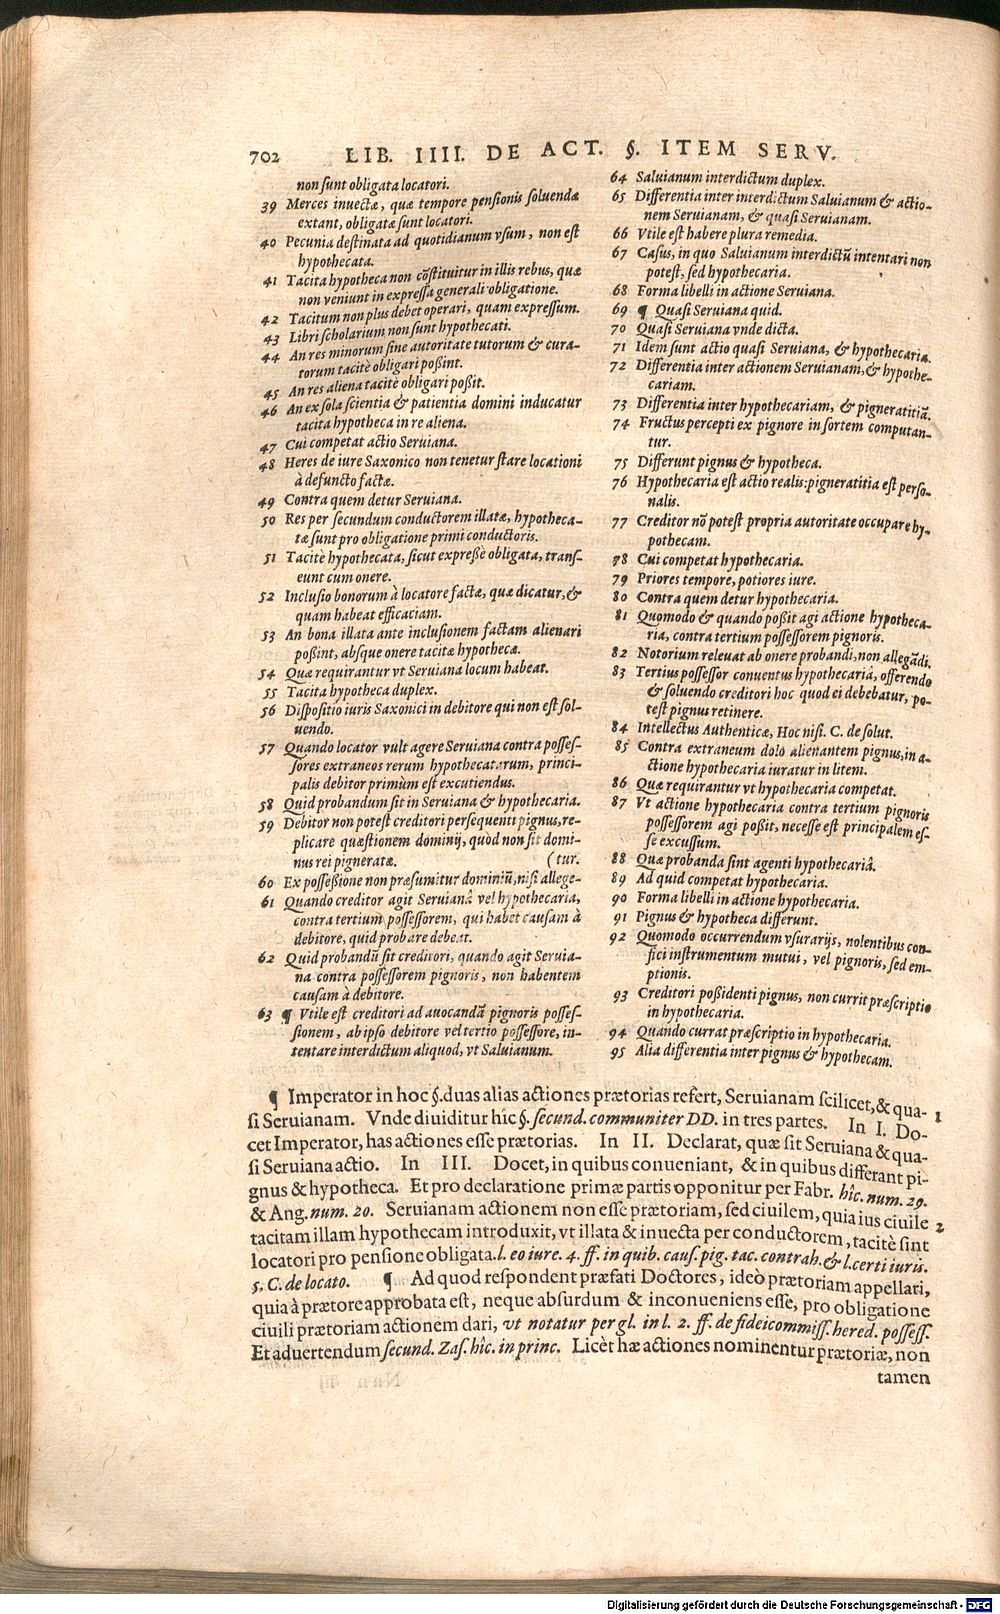 702 LIB. IIII. DE ACT. §. ITEM SERV.
non sunt obligata locatori.
39 Merces inuectæ, quæ tempore pensionis soluendæ
extant, obligatæ sunt locatori.
40 Pecunia destinata ad quotidianum vsum, non est
hypothecata.
41 Tacita hypotheca non cõstituitur in illis rebus, quæ
non veniunt in expressa generali obligatione.
42 Tacitum non plus debet operari, quam expressum.
43 Libri scholarium non sunt hypothecati.
44 An res minorum sine autoritate tutorum & cura-
torum tacitè obligari poßint.
45 An res aliena tacitè obligari poßit.
46 An ex sola scientia & patientia domini inducatur
tacita hypotheca in re aliena.
47 Cui competat actio Seruiana.
48 Heres de iure Saxonico non tenetur stare locationi
à defuncto factæ.
49 Contra quem detur Seruiana.
50 Res per secundum conductorem illatæ, hypotheca-
tæ sunt pro obligatione primi conductoris.
51 Tacitè hypothecata, sicut expreßè obligata, trans-
eunt cum onere.
52 Inclusio bonorum à locatore factæ, quæ dicatur, &
quam habeat efficaciam.
53 An bona illata ante inclusionem factam alienari
poßint, absque onere tacitæ hypothecæ.
54 Quæ requirantur vt Seruiana locum habeat.
55 Tacita hypotheca duplex.
56 Dispositio iuris Saxonici in debitore qui non est sol-
uendo.
57 Quando locator vult agere Seruiana contra posses-
sores extraneos rerum hypothecatarum, princi-
palis debitor primùm est excutiendus.
58 Quid probandum sit in Seruiana & hypothecaria.
59 Debitor non potest creditori persequenti pignus, re-
plicare quæstionem dominij, quòd non sit domi-
nus rei pigneratæ. (tur.
60 Ex poßeßione non præsumitur dominiũ, nisi allege-
61 Quando creditor agit Seruianâ vel hypothecaria,
contra tertium possessorem, qui habet causam à
debitore, quid probare debeat.
62 Quid probandũ sit creditori, quando agit Seruia-
na contra possessorem pignoris, non habentem
causam à debitore.
63 ¶ Vtile est creditori ad auocandã pignoris posses-
sionem, ab ipso debitore vel tertio possessore, in-
tentare interdictum aliquod, vt Saluianum.
64 Saluianum interdictum duplex.
65 Differentia inter interdictum Saluianum & actio-
nem Seruianam, & quasi Seruianam.
66 Vtile est habere plura remedia.
67 Casus, in quo Saluianum interdictũ intentari non
potest, sed hypothecaria.
68 Forma libelli in actione Seruiana.
69 ¶ Quasi Seruiana quid.
70 Quasi Seruiana vnde dicta.
71 Idem sunt actio quasi Seruiana, & hypothecaria.
72 Differentia inter actionem Seruianam, & hypothe-
cariam.
73 Differentia inter hypothecariam, & pigneratitiã.
74 Fructus percepti ex pignore in sortem computan-
tur.
75 Differunt pignus & hypotheca.
76 Hypothecaria est actio realis: pigneratitia est perso-
nalis.
77 Creditor nõ potest propria autoritate occupare hy-
pothecam.
78 Cui competat hypothecaria.
79 Priores tempore, potiores iure.
80 Contra quem detur hypothecaria.
81 Quomodo & quando poßit agi actione hypotheca-
ria, contra tertium possessorem pignoris.
82 Notorium releuat ab onere probandi, non allegãdi.
83 Tertius possessor conuentus hypothecariâ, offerendo
& soluendo creditori hoc quod ei debebatur, po-
test pignus retinere.
84 Intellectus Authenticæ, Hoc nisi. C. de solut.
85 Contra extraneum dolo alienantem pignus, in a-
ctione hypothecaria iuratur in litem.
86 Quæ requirantur vt hypothecaria competat.
87 Vt actione hypothecaria contra tertium pignoris
possessorem agi poßit, necesse est principalem es-
se excussum.
88 Quæ probanda sint agenti hypothecariâ.
89 Ad quid competat hypothecaria.
90 Forma libelli in actione hypothecaria.
91 Pignus & hypotheca differunt.
92 Quomodo occurrendum vsurarijs, nolentibus con-
fici instrumentum mutui, vel pignoris, sed em-
ptionis.
93 Creditori poßidenti pignus, non currit præscriptio
in hypothecaria.
94 Quando currat præscriptio in hypothecaria.
95 Alia differentia inter pignus & hypothecam.
¶ Imperator in hoc §. duas alias actiones prætorias refert, Seruianam scilicet, & qua- 1
si Seruianam. Vnde diuiditur hic §. secund. communiter DD. in tres partes. In I. Do-
cet Imperator, has actiones esse prætorias. In II. Declarat, quæ sit Seruiana & qua-
si Seruiana actio. In III. Docet, in quibus conueniant, & in quibus differant pi-
gnus & hypotheca. Et pro declaratione primæ partis opponitur per Fabr. hîc. num. 29.
& Ang. num. 20. Seruianam actionem non esse prætoriam, sed ciuilem, quia ius ciuile 2
tacitam illam hypothecam introduxit, vt illata & inuecta per conductorem, tacitè sint
locatori pro pensione obligata. l. eo iure. 4. ff. in quib. caus. pig. tac. contrah. & l. certi iuris.
5. C. de locato. ¶ Ad quod respondent præfati Doctores, ideò prætoriam appellari,
quia à prætore approbata est, neque absurdum & inconueniens esse, pro obligatione
ciuili prætoriam actionem dari, vt notatur per gl. in l. 2. ff. de fideicommiss. hered. possess.
Et aduertendum secund. Zas. hîc. in princ. Licèt hæ actiones nominentur prætoriæ, non
tamen
Digitalisierung gefördert durch die Deutsche Forschungsgemeinschaft - DFG